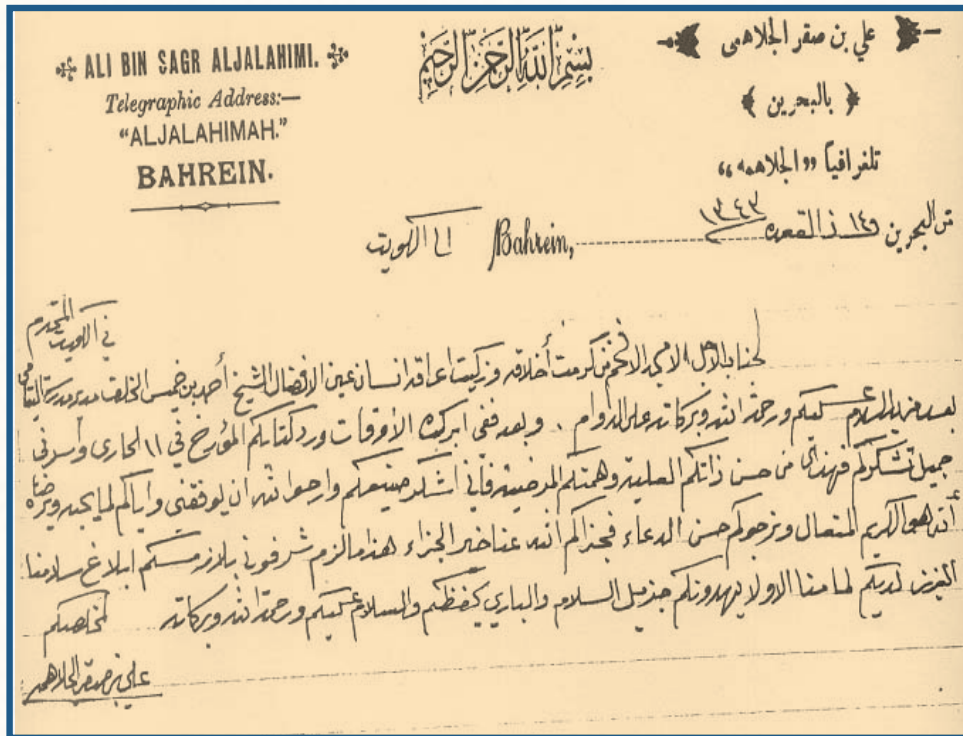 ALI BIN SAGR ALJALAHIMI.
Telegraphic Address:—
"ALJALAHIMAH."
BAHREIN.
بسم الله الرحمن الرحيم
علي بن صقر الجلاهمى
بالبحرين
تلغرافياً "الجلاهمه"
من البحرين ١٤ ذ القعده ١٣٤٣
Bahrein,
الى الكويت
لجناب الاجل الامجد الافخم من كرمت أخلاقه وزكيت اعراقه انسان عين الافضال الشيخ أحمد بن خميس الخلف مدير مدرسة
المحترم
في الكويت
بعد مزيد السلام عليكم ورحمة الله وبركاته على الدوام . وبعد ففي ابرك الأوقات ورد كتابكم المؤرخ في ١١ الجارى وأسرني
جميل تشكركم فهذا من حسن ذاتكم العلية وهمتكم المرضية فأني اشكر صنيعكم وارجو الله ان يوفقني واياكم لما يحبه ويرضاه
أنه هو الكريم المتعال ونرجوكم حسن الدعاء فجزاكم الله عنا خير الجزاء هذا مالزم شرفوني بلازمكم ابلاغ سلامنا
العزيز لديكم كما منا الاولاد يهدونكم جزيل السلام والباري يحفظكم والسلام عليكم ورحمة الله وبركاته
مخلصكم
علي بن صقر الجلاهمه